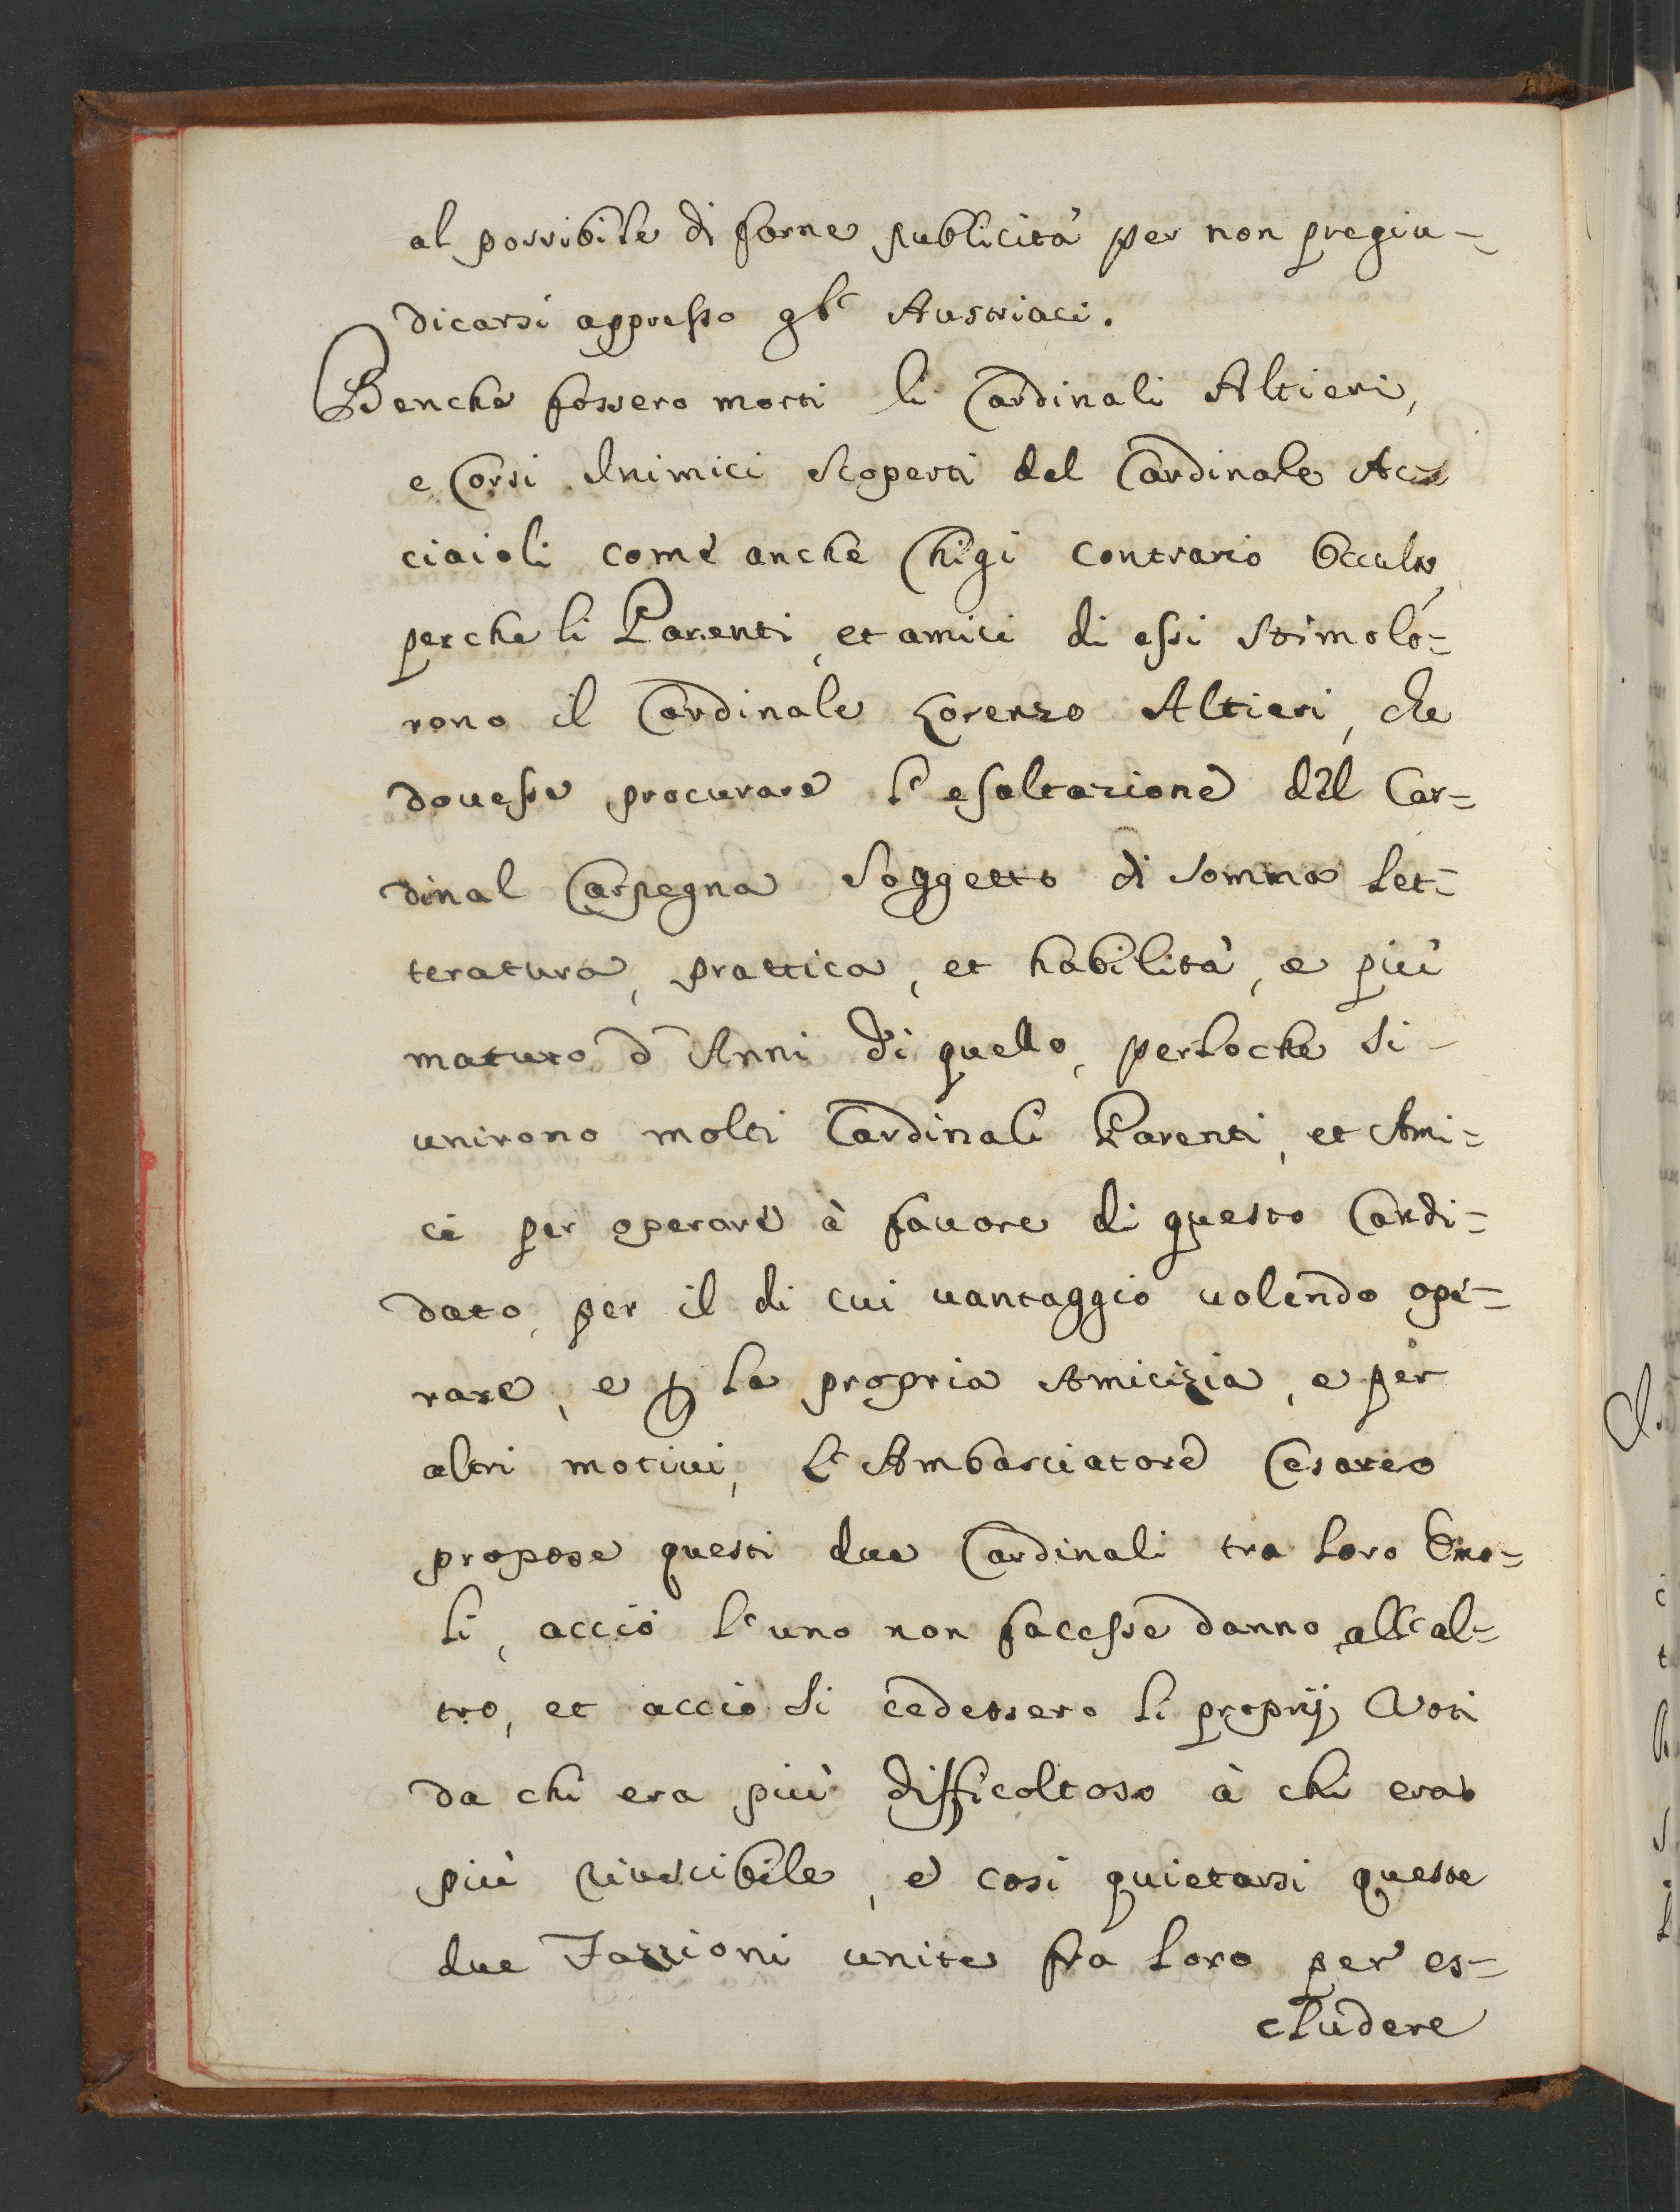 al possibile di farne publicità per non pregiu=
dicarsi appresso gl' Austriaci.
Benche fossero morti li Cardinali Altieri,
e Corsi Inimici scoperti del Cardinale Ac=
ciaioli come anche Chigi contrario occulto,
perche li Parenti, et amici di essi stimolò=
rono il Cardinale Lorenzo Altieri, che
douesse procurare l'esaltazione del Car=
dinal Carpegna soggetto di somma let=
teratura, prattica, et habilità, e più
maturo d'Anni di quello, perloche si
unirono molti Cardinali Parenti, et Ami=
ci per operare à fauore di questo Candi=
dato, per il di cui uantaggio uolendo ope=
rare, e p la propria Amicizia, e per
altri motiui, l'Ambasciatore Cesareo
propose questi due Cardinali tra loro Emo=
li, acciò l'uno non facesse danno all'al=
tro, et acciò si cedessero li proprij Voti
da chi era più difficoltoso à chi era
più riuscibile, e così quietarsi queste
due Fazzioni unite fra loro per es=
cludere